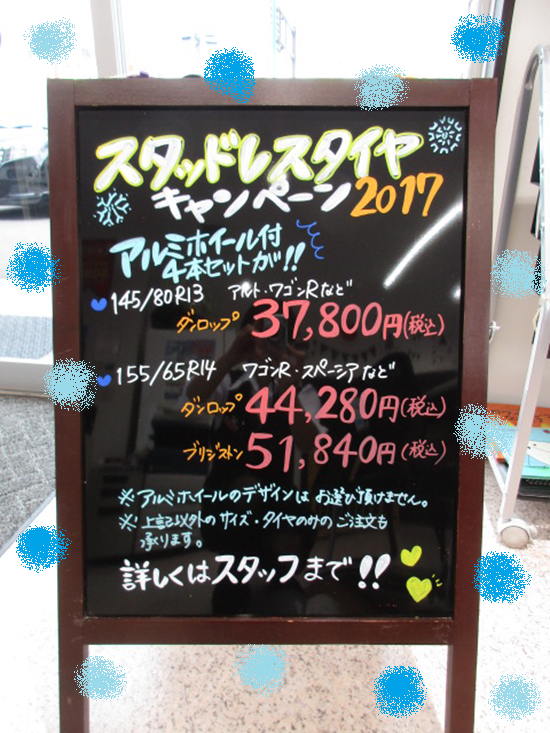 スタッドレスタイヤ
キャンペーン2017
アルミホイール付
4本セットが!!
145/80R13 アルト・ワゴンRなど
ダンロップ 37,800円(税込)
155/65R14 ワゴンR・スペーシアなど
ダンロップ 44,280円(税込)
ブリジストン 51,840円(税込)
※アルミホイールのデザインはお選び頂けません。
※上記以外のサイズ・タイヤのみのご注文も
承ります。
詳しくはスタッフまで!!